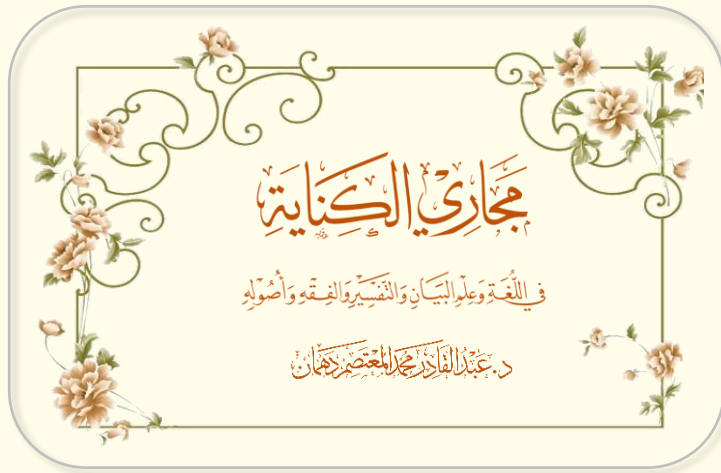 مَجَارِي الْكِنَايَةِ
في اللُّغَةِ وَعِلْمِ البَيَانِ وَالتَّفْسِيْرِ وَالفِقْهِ وَأُصُوْلِهِ
د. عَبْدُ القَادِرِ مُحَمَّد المُعْتَصِم دَهْمَان